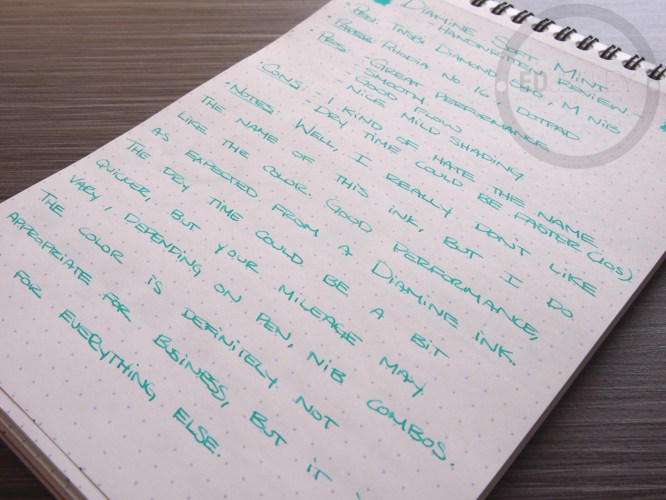 DIAMINE SOFT MINT
- HANDWRITTEN REVIEW -
• PEN: TWSBI DIAMOND 580, M NIB
• PAPER: RHODIA No. 16 DOTPAD
• PROS: - GREAT PERFORMANCE
- SMOOTH
- GOOD FLOW
- NICE MILD SHADING
• CONS: - DRY TIME COULD BE FASTER (10S)
- I KIND OF HATE THE NAME
• NOTES: WELL, I REALLY DON'T LIKE
THE NAME OF THIS INK, BUT I DO
LIKE THE COLOR. GOOD PERFORMANCE,
AS EXPECTED FROM A DIAMINE INK.
THE DRY TIME COULD BE A BIT
QUICKER, BUT YOUR MILEAGE MAY
VARY, DEPENDING ON PEN, NIB COMBOS.
THE COLOR IS DEFINITELY NOT
APPROPRIATE FOR BUSINESS, BUT IT
FOR EVERYTHING ELSE.